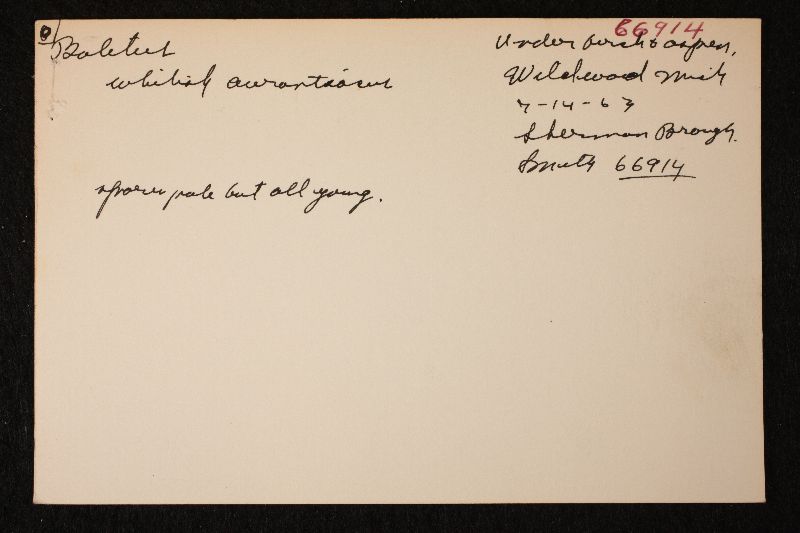 66914
Boletus
whitish aurantiacus
spores pale but all young.
Under birch & aspen,
Wildwood Mich
7-14-63
Sherman Brough.
Smith 66914